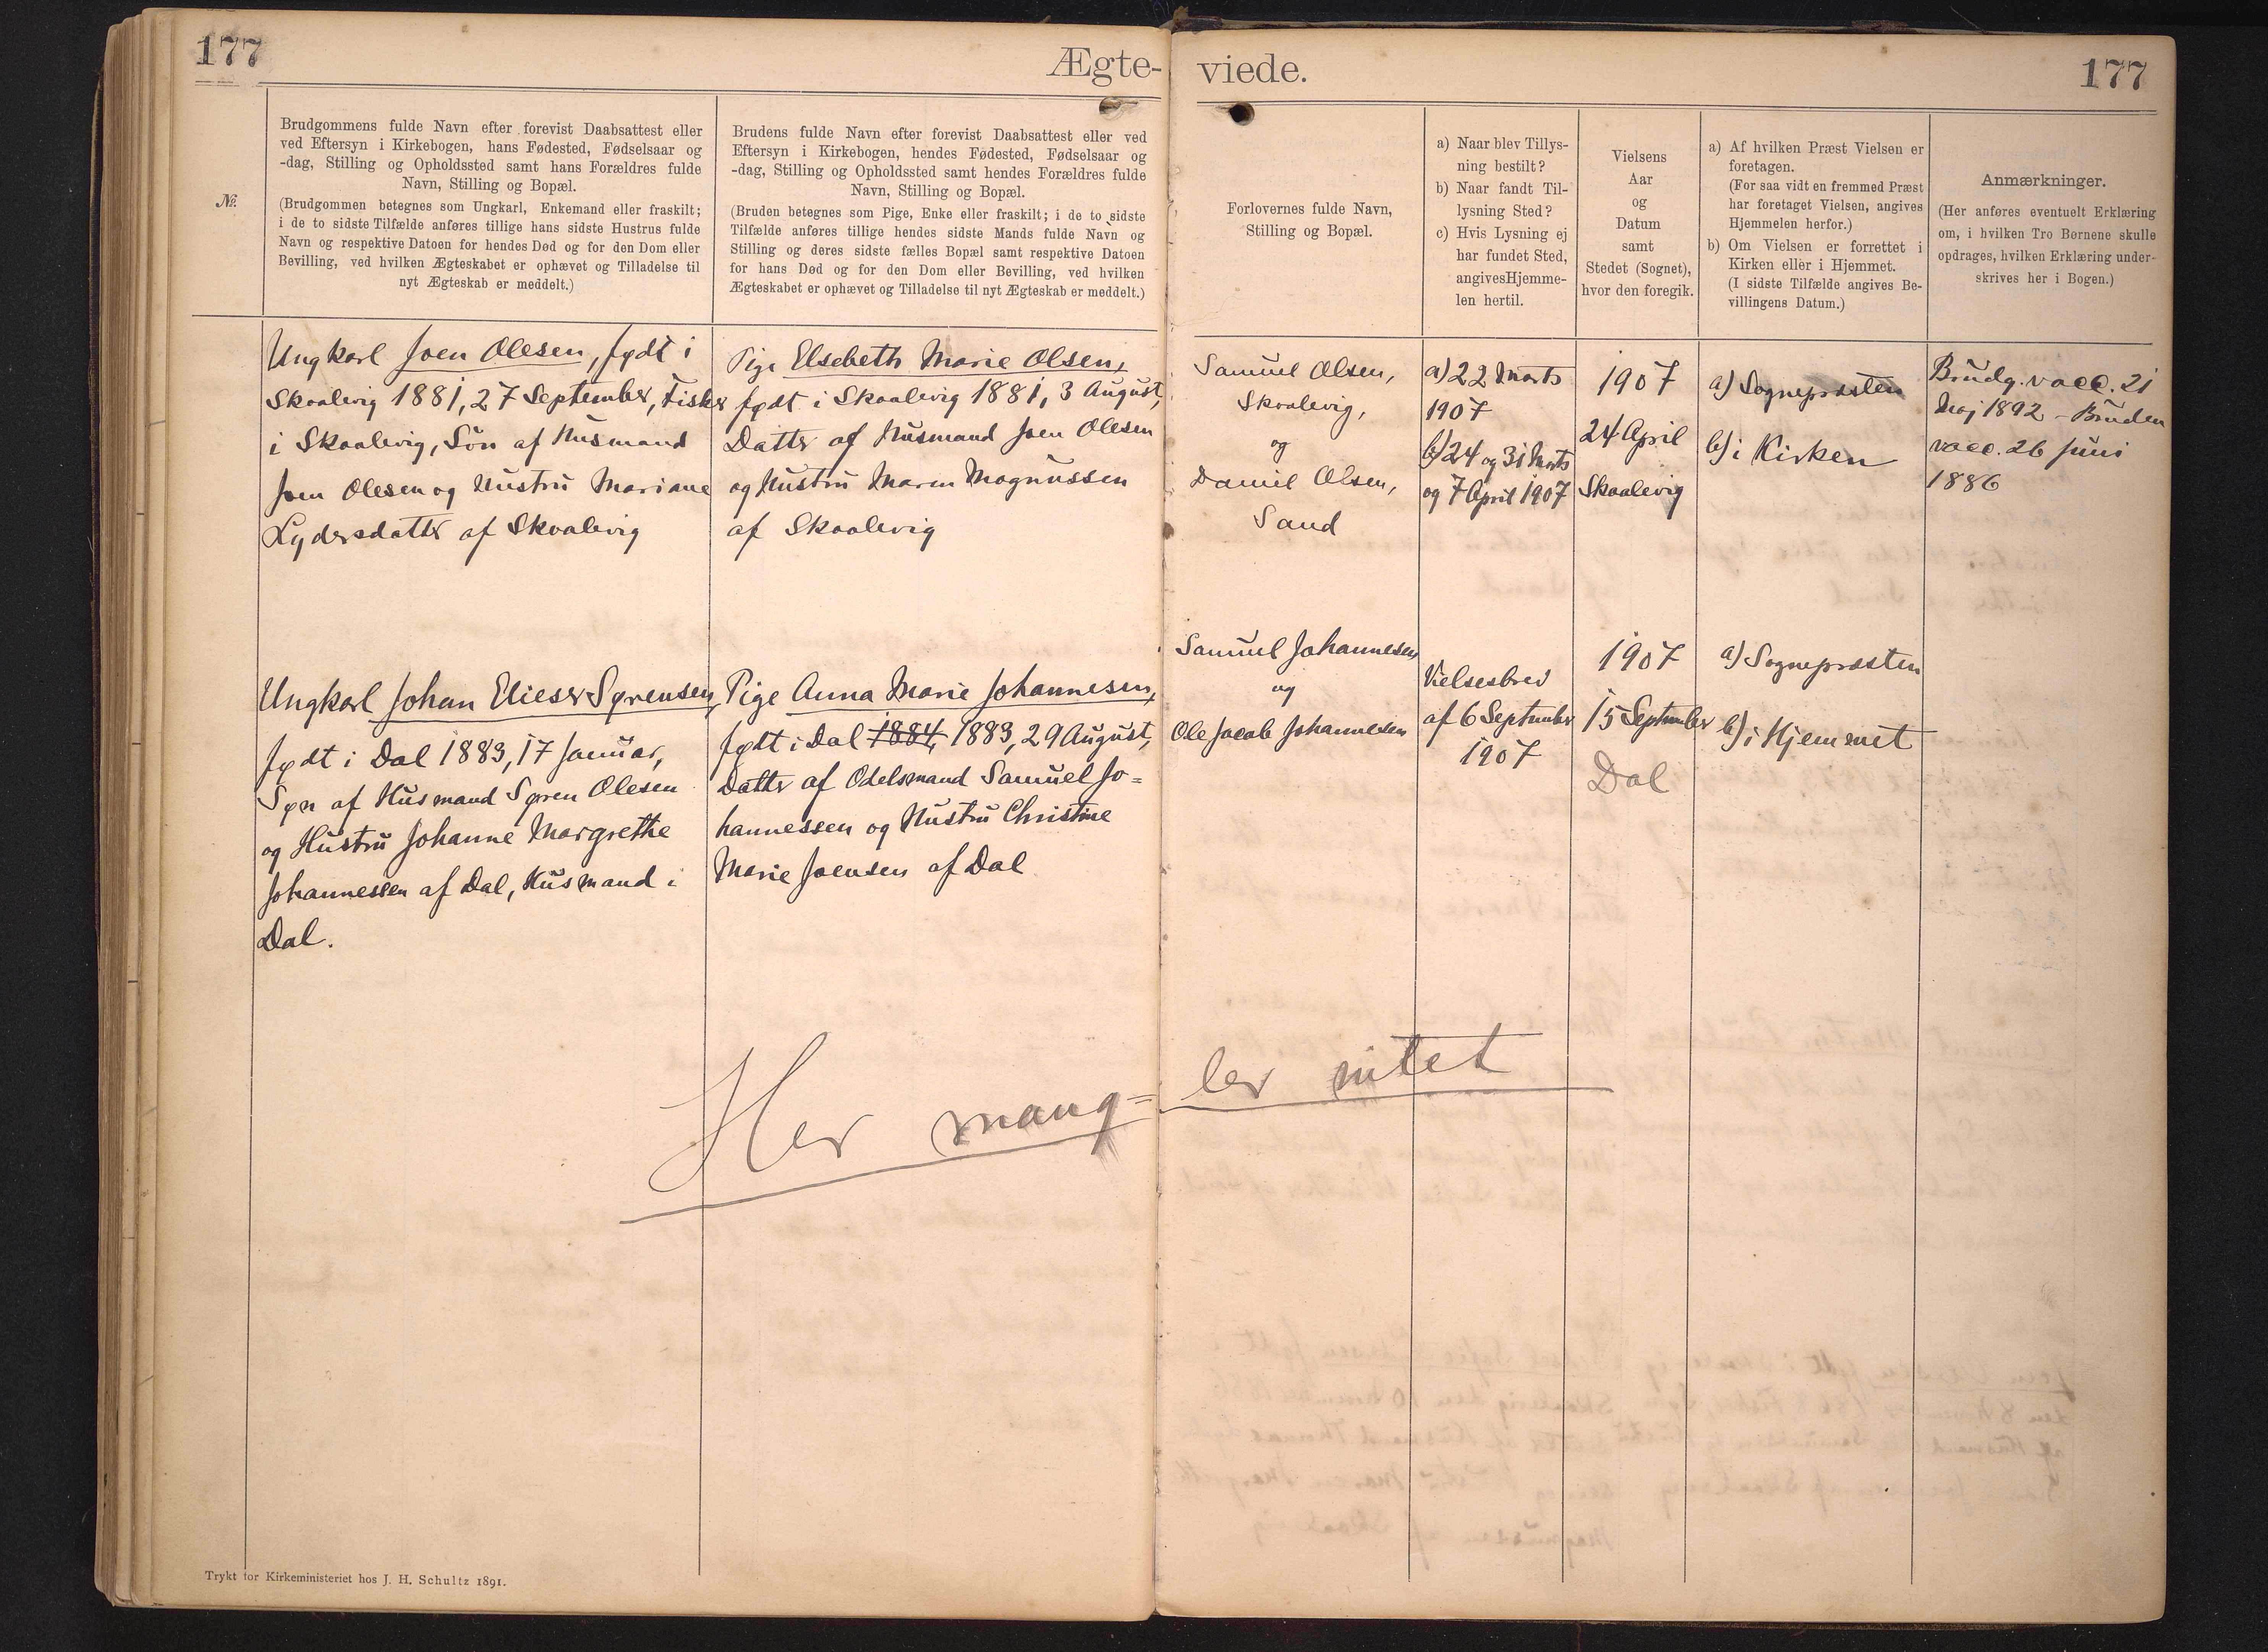 177
Ægte-
viede.
177
№.
Brudgommens fulde Navn efter forevist Daabsattest eller
ved Eftersyn i Kirkebogen, hans Fødested, Fødselsaar og
-dag, Stilling og Opholdssted samt hans Forældres fulde
Navn, Stilling og Bopæl.
(Brudgommen betegnes som Ungkarl, Enkemand eller fraskilt;
i de to sidste Tilfælde anføres tillige hans sidste Hustrus fulde
Navn og respektive Datoen for hendes Død og for den Dom eller
Bevilling, ved hvilken Ægteskabet er ophævet og Tilladelse til
nyt Ægteskab er meddelt.)
Brudens fulde Navn efter forevist Daabsattest eller ved
Eftersyn i Kirkebogen, hendes Fødested, Fødselsaar og
-dag, Stilling og Opholdssted samt hendes Forældres fulde
Navn, Stilling og Bopæl.
(Bruden betegnes som Pige, Enke eller fraskilt; i de to sidste
Tilfælde anføres tillige hendes sidste Mands fulde Navn og
Stilling og deres sidste fælles Bopæl samt respektive Datoen
for hans Død og for den Dom eller Bevilling, ved hvilken
Ægteskabet er ophævet og Tilladelse til nyt Ægteskab er meddelt.)
Forlovernes fulde Navn,
Stilling og Bopæl.
a) Naar blev Tillys-
ning bestilt?
b) Naar fandt Til-
lysning Sted?
c) Hvis Lysning ej
har fundet Sted,
angives Hjemme-
len hertil.
Vielsens
Aar
og
Datum
samt
Stedet (Sognet),
hvor den foregik.
a) Af hvilken Præst Vielsen er
foretagen.
(For saa vidt en fremmed Præst
har foretaget Vielsen, angives
Hjemmelen herfor.)
b) Om Vielsen er forrettet i
Kirken eller i Hjemmet.
(I sidste Tilfælde angives Be-
villingens Datum.)
Anmærkninger.
(Her anføres eventuelt Erklæring
om, i hvilken Tro Børnene skulle
opdrages, hvilken Erklæring under-
skrives her i Bogen.)
Ungkarl Joen Olesen, født i
Skaalevig 1881, 27 September, Fisker
i Skaalevig, Sön af Husmand
Joen Olesen og Hustru Mariane
Lydersdatter af Skaalevig
Pige Elsebeth Marie Olsen,
født i Skaalevig 1881, 3 August,
Datter af Husmand Joen Olesen
og Hustru Maren Magnussen
af Skaalevig
Samuel Olsen,
Skaalevig,
og
Daniel Olsen,
Sand
a) 22 Marts
1907
b) 24 og 31 Marts
og 7 April 1907
1907
24 April
Skaalevig
a) Sognepræsten
b) i Kirken
Brudg. vacc. 21
Maj 1892 - Bruden
vacc. 26 Juni
1886
Ungkarl Johan Elieser Sørensen,
født i Dal 1883, 17 Januar,
Søn af Husmand Søren Olesen
og Hustru Johanne Margrethe
Johannessen af Dal, Husmand i
Dal.
Pige Anna Marie Johannesen,
født i Dal 1884, 1883, 29 August,
Datter af Odelsmand Samuel Jo=
hannessen og Hustru Christine
Marie Joensen af Dal
Samuel Johannesen
og
Ole Jacob Johannesen
Vielsesbrev
af 6 September
1907
1907
15 September
Dal
a) Sognepræsten
b) i Hjemmet
Her mang=
ler intet
Trykt for Kirkeministeriet hos J. H. Schultz 1891.